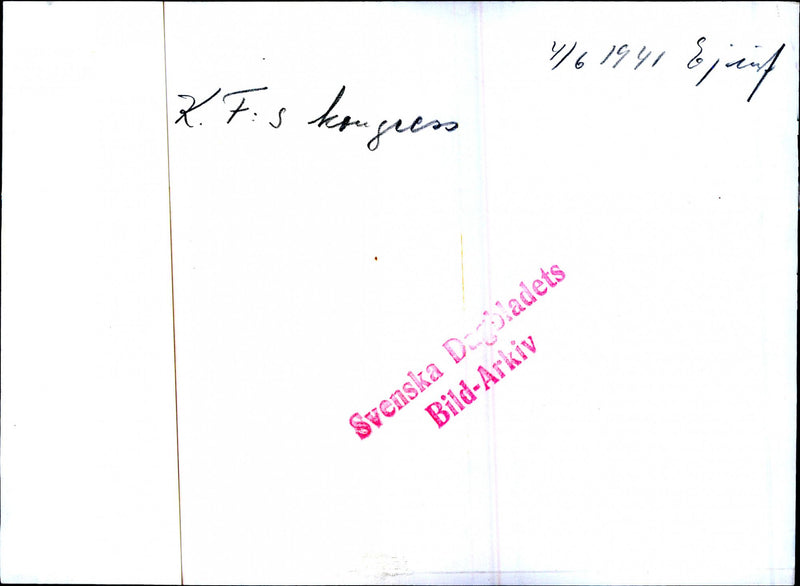 4/6 1941 Ej inf
K. F:s kongress
Svenska Dagbladets
Bild-Arkiv